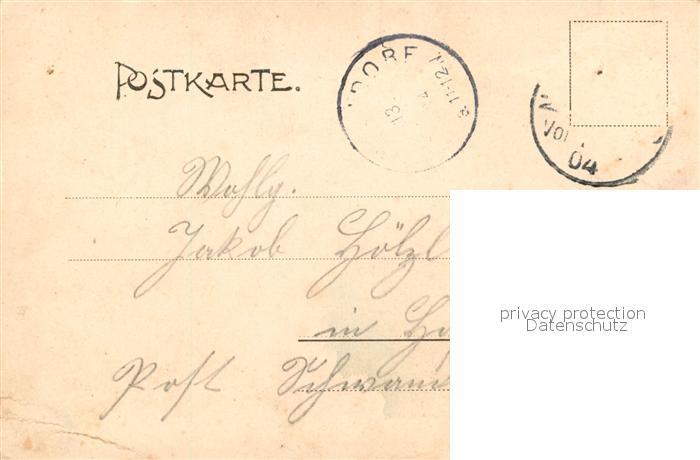 POSTKARTE.
DORF
13.
8. 11-12N
Vor
04
Wohlg.
Jakob Hölzl
in
Post Schwan
privacy protection
Datenschutz